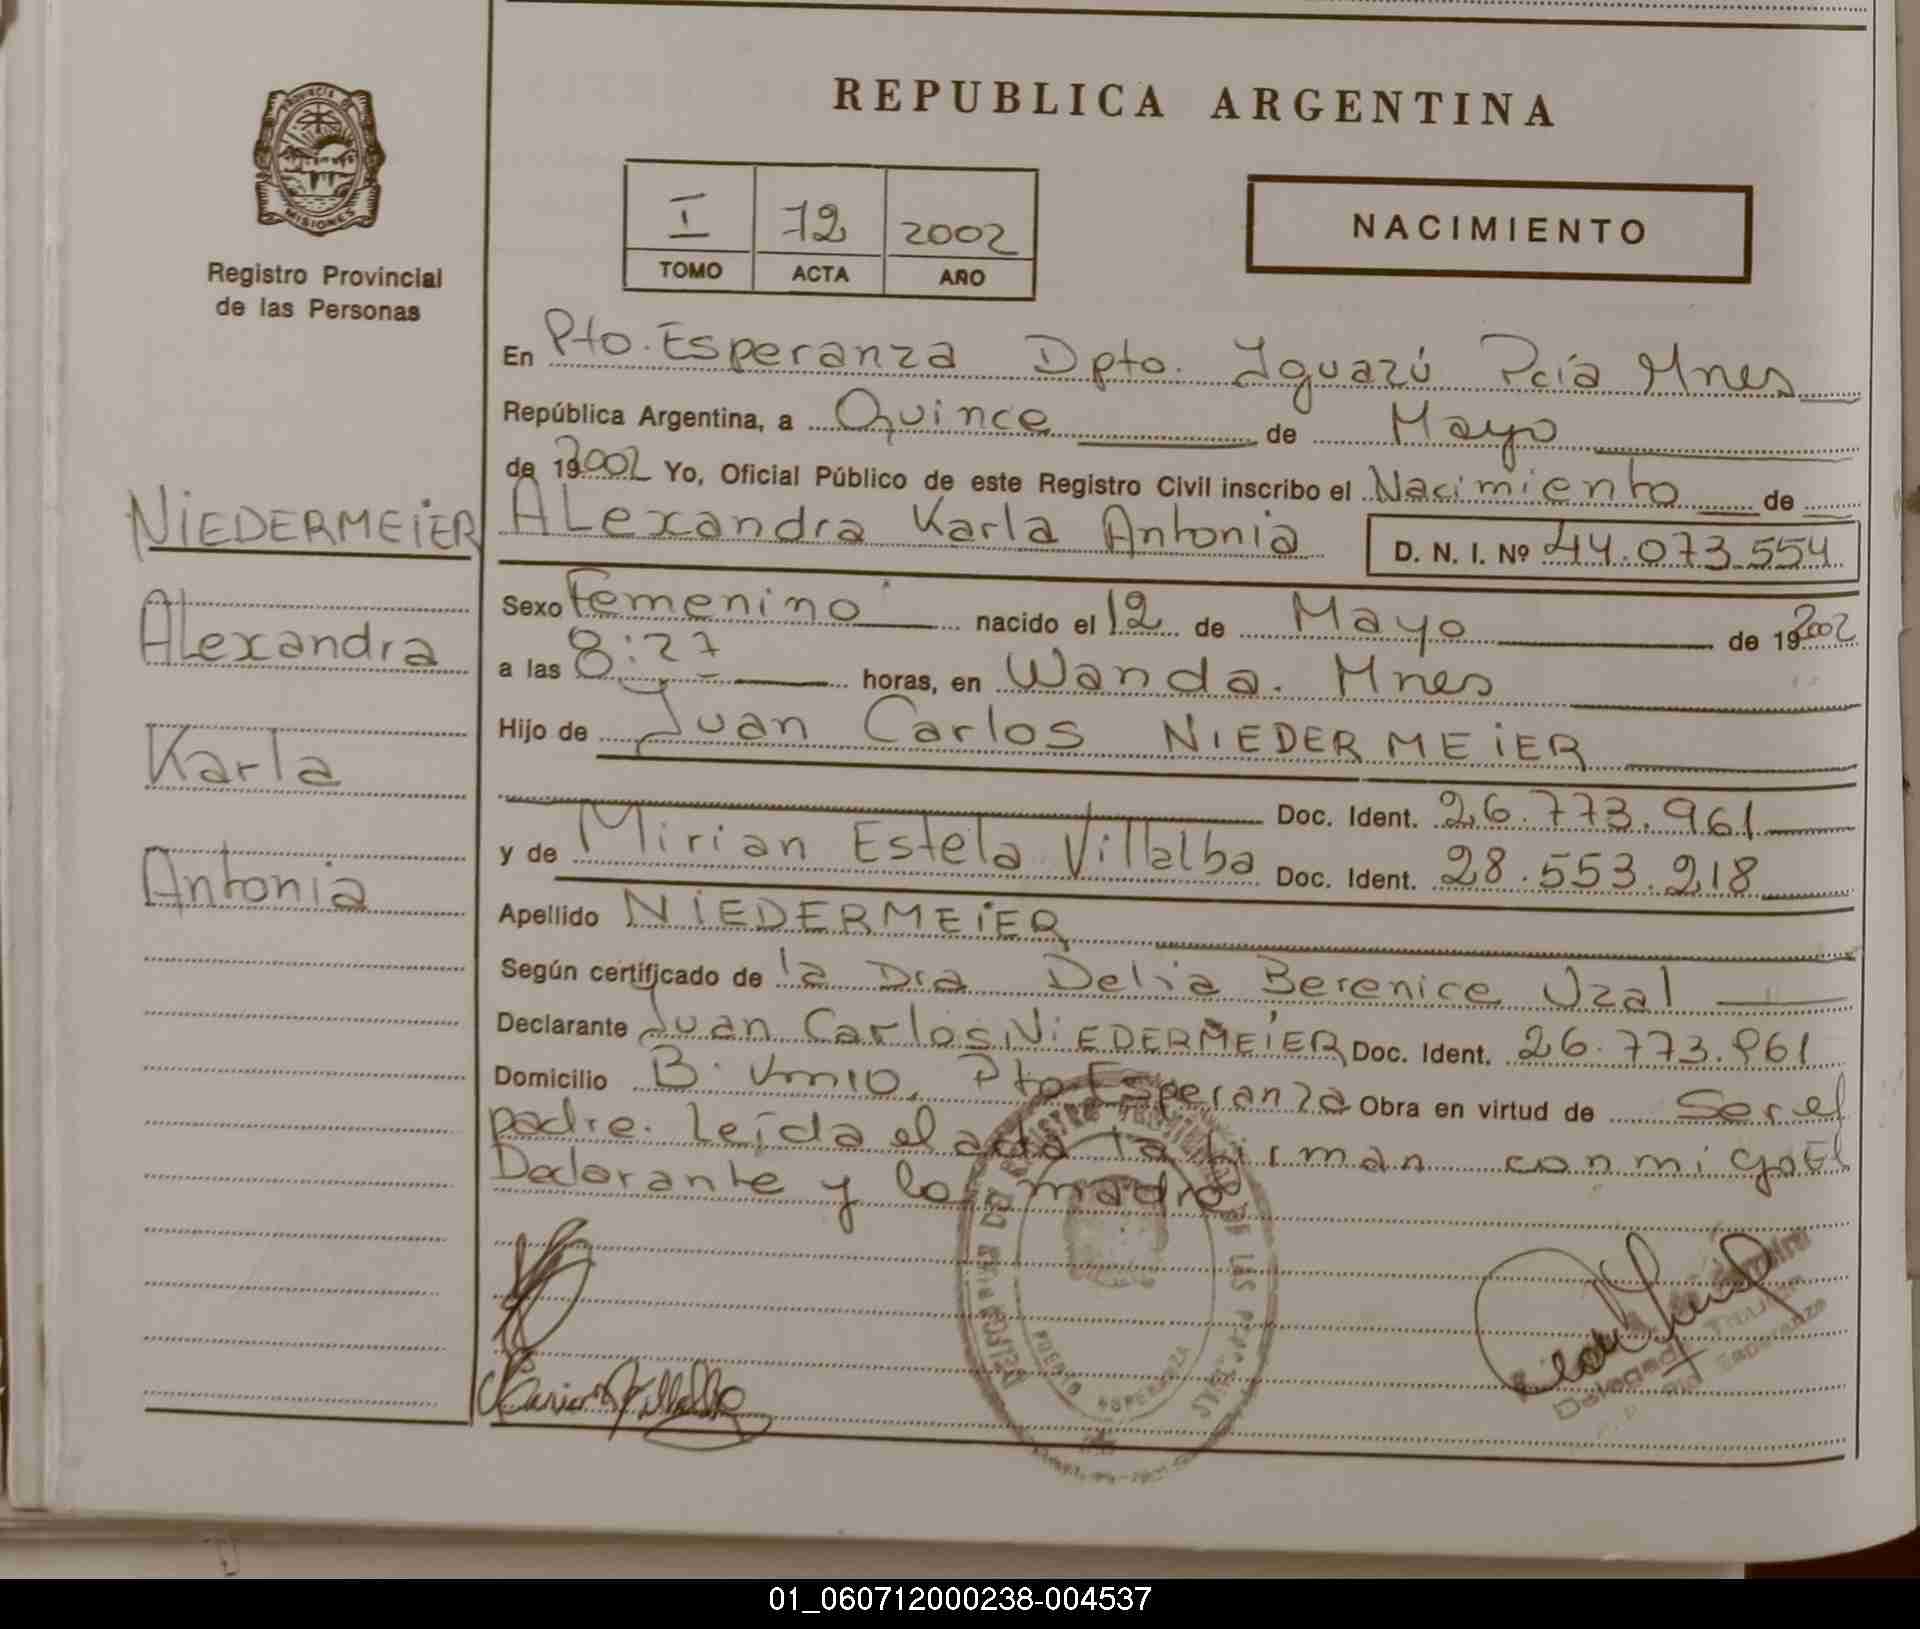 REPUBLICA ARGENTINA
PROVINCIA DE
MISIONES
Registro Provincial
de las Personas
I 72 2002
TOMO ACTA AÑO
NACIMIENTO
En Pto. Esperanza Dpto. Iguazú Pcia Mnes
República Argentina, a Quince de Mayo
de 192002 Yo, Oficial Público de este Registro Civil inscribo el Nacimiento de
NIEDERMEIER
Alexandra Karla Antonia D. N. I. Nº 44.073.554
Alexandra
Karla
Antonia
Sexo Femenino nacido el 12 de Mayo de 192002
a las 8:27 horas, en Wanda. Mnes
Hijo de Juan Carlos NIEDERMEIER
Doc. Ident. 26.773.961
y de Mirian Estela Villalba Doc. Ident. 28.553.218
Apellido NIEDERMEIER
Según certificado de la Dra Delia Berenice Uzal
Declarante Juan Carlos NIEDERMEIER Doc. Ident. 26.773.961
Domicilio B. Pto Esperanza Obra en virtud de Ser el
padre. Leída el acta la firman conmigo El
Declarante y la madre
PUERTO ESPERANZA
01_060712000238-004537